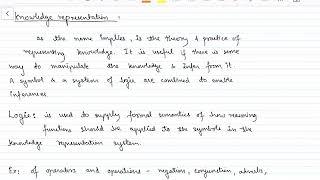 Knowledge representation :
as the name implies, is the theory & practice of
representing knowledge. It is useful if there is some
way to manipulate the knowledge & infer from it.
A symbol & a system of logic are combined to enable
inferences.
Logic: is used to supply formal semantics of how reasoning
functions should be applied to the symbols in the
knowledge representation system.
Ex: of operators and operations - negation, conjunction,